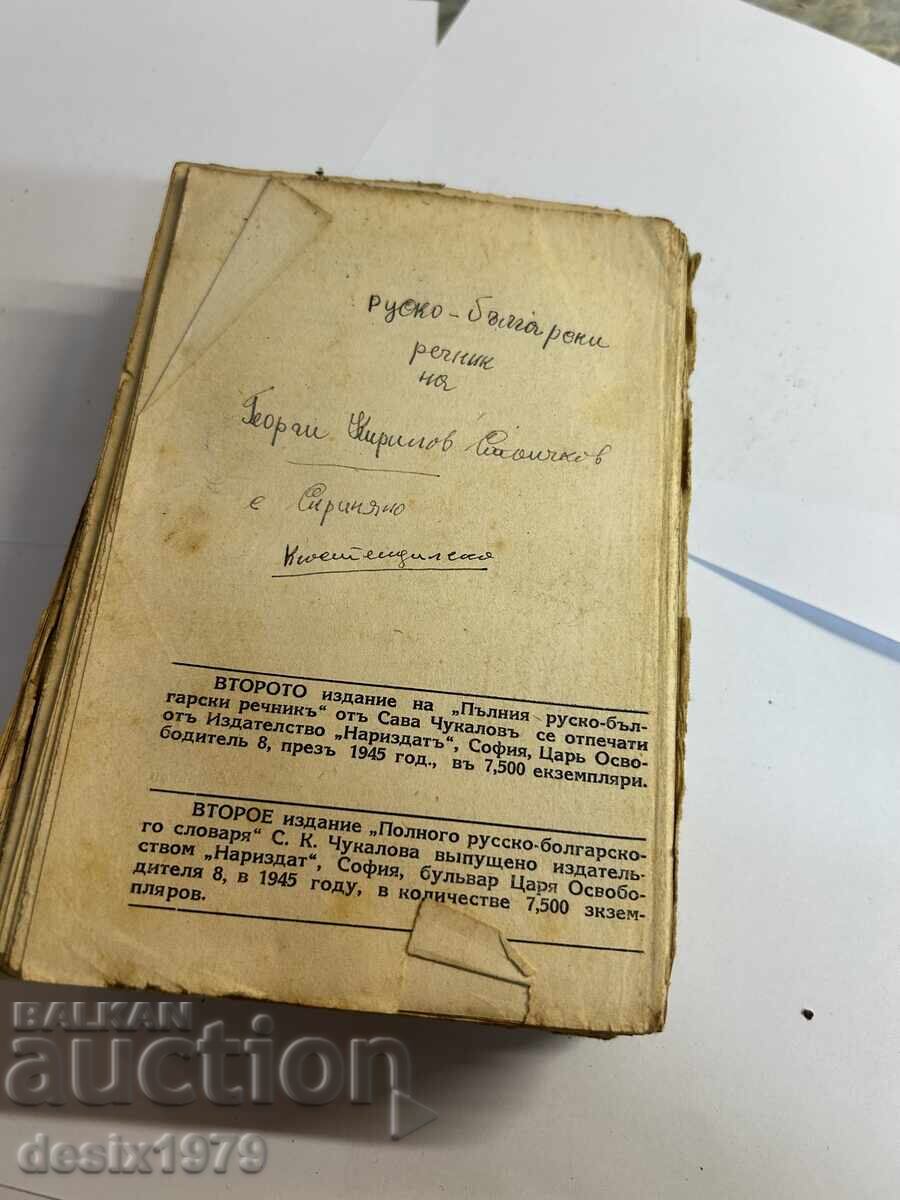 Руско-български
речник
на
Георги Кирилов Стоичков
с Скриняно
Кюстендилско
ВТОРОТО издание на „Пълния руско-бъл-
гарски речникъ“ отъ Сава Чукаловъ се отпечати
отъ Издателство „Нариздатъ“, София, Царь Осво-
бодитель 8, презъ 1945 год., въ 7,500 екземпляри.
ВТОРОЕ издание „Полного русско-болгарско-
го словаря“ С. К. Чукалова выпущено издатель-
ством „Нариздат“, София, бульвар Царя Освобо-
дителя 8, в 1945 году, в количестве 7,500 зкзем-
пляров.
BALKAN
auction
desix1979